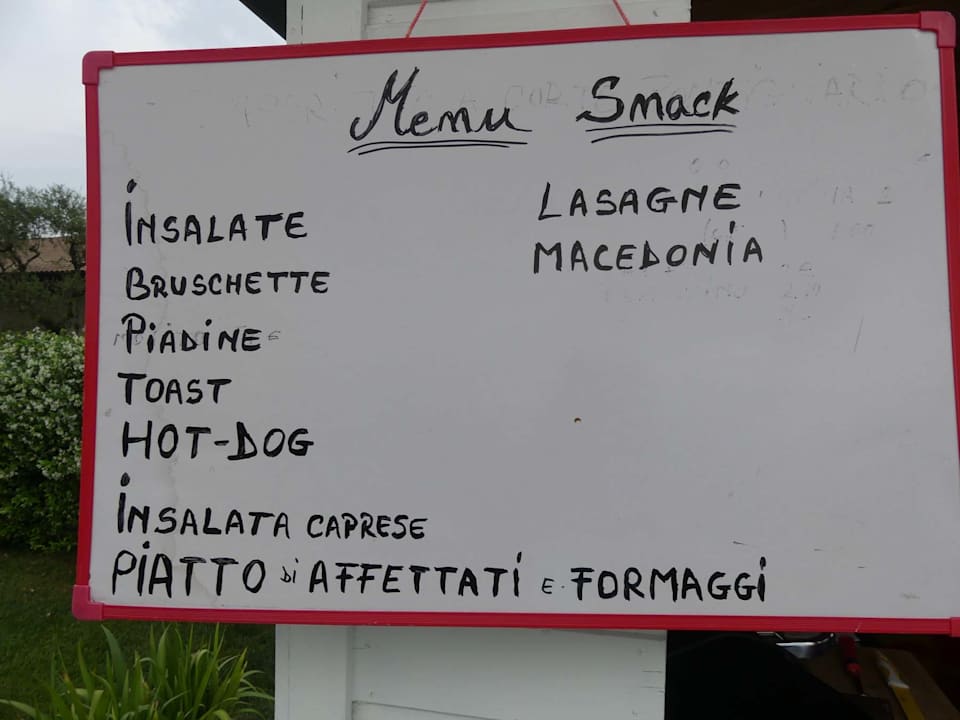 Menu Smack
INSALATE
BRUSCHETTE
PIADINE
TOAST
HOT-DOG
INSALATA CAPRESE
PIATTO di AFFETTATI E FORMAGGI
LASAGNE
MACEDONIA